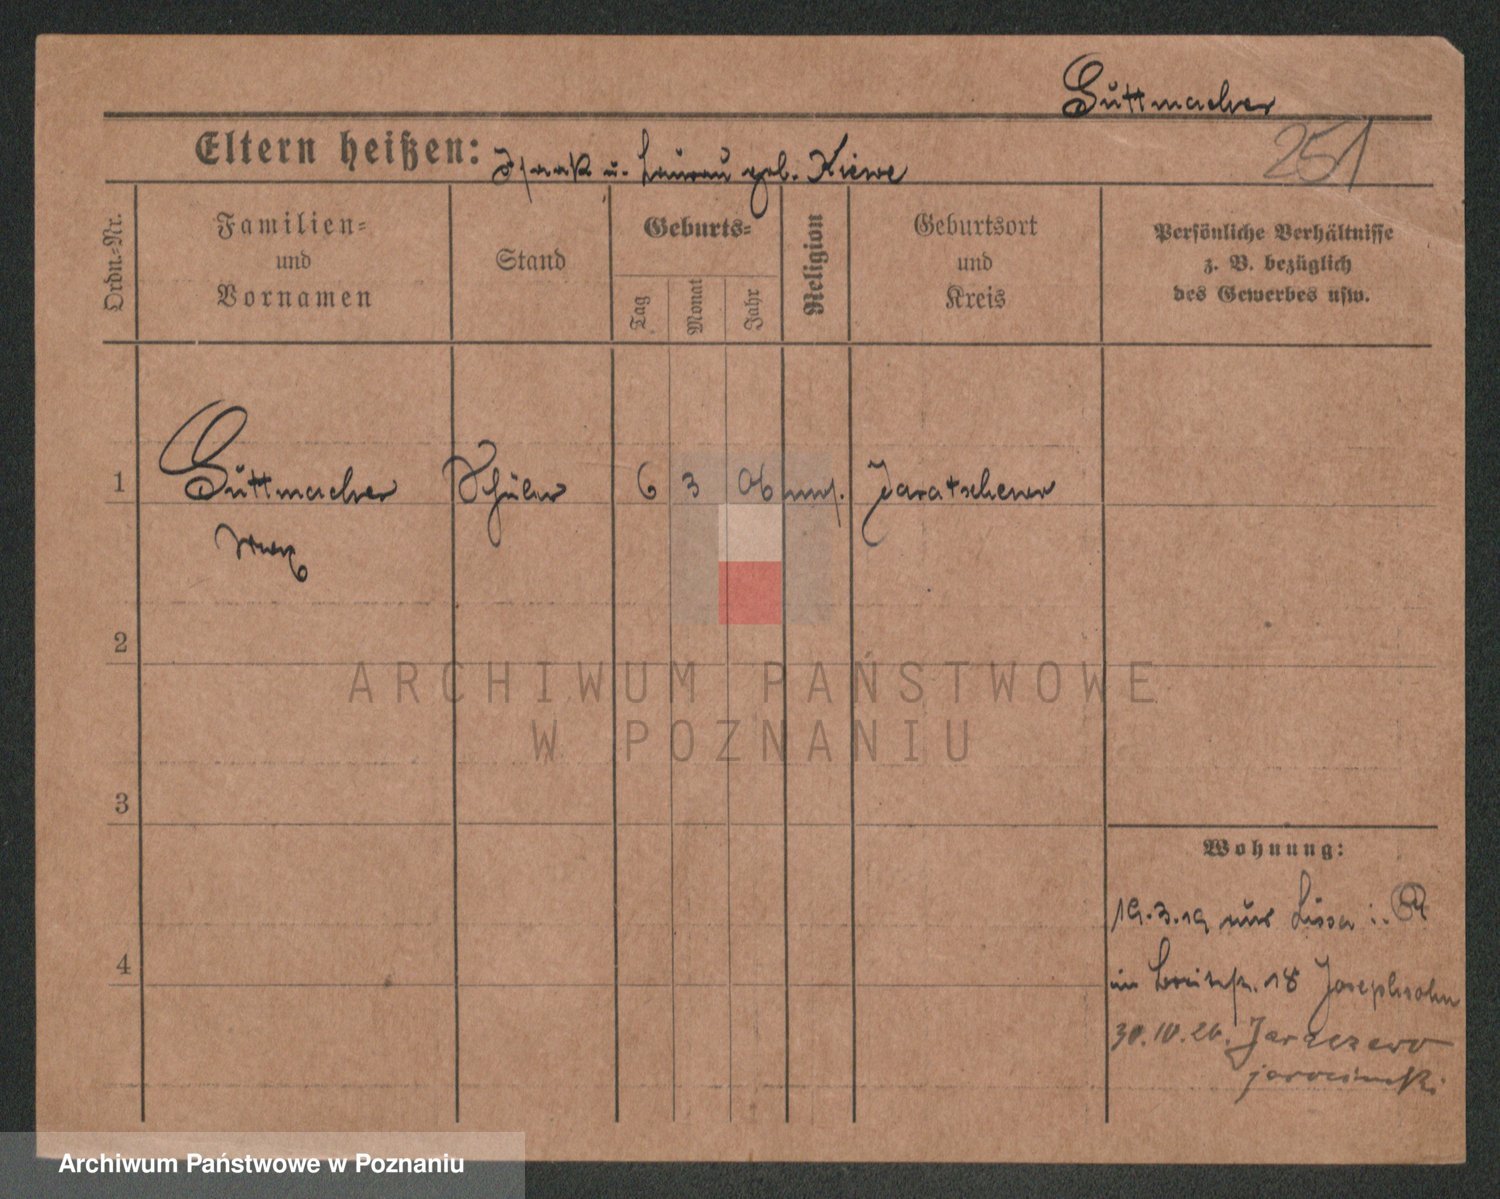 Guttmacher
251
Eltern heißen: Isaak u. geb. Kiewe
Ordn.-Nr.
Familien=
und
Vornamen
Stand
Geburts=
Tag
Monat
Jahr
Religion
Geburtsort
und
Kreis
Persönliche Verhältnisse
z. B. bezüglich
des Gewerbes usw.
1 Guttmacher Schüler 6 3 06 mos. Jaratschewo
2
3
4
Wohnung:
19.3.19 aus Lissa i. P.
in Breitestr. 18 Josephsohn
30.10.26. Jaraczewo
jarociński
ARCHIWUM PAŃSTWOWE
W POZNANIU
Archiwum Państwowe w Poznaniu